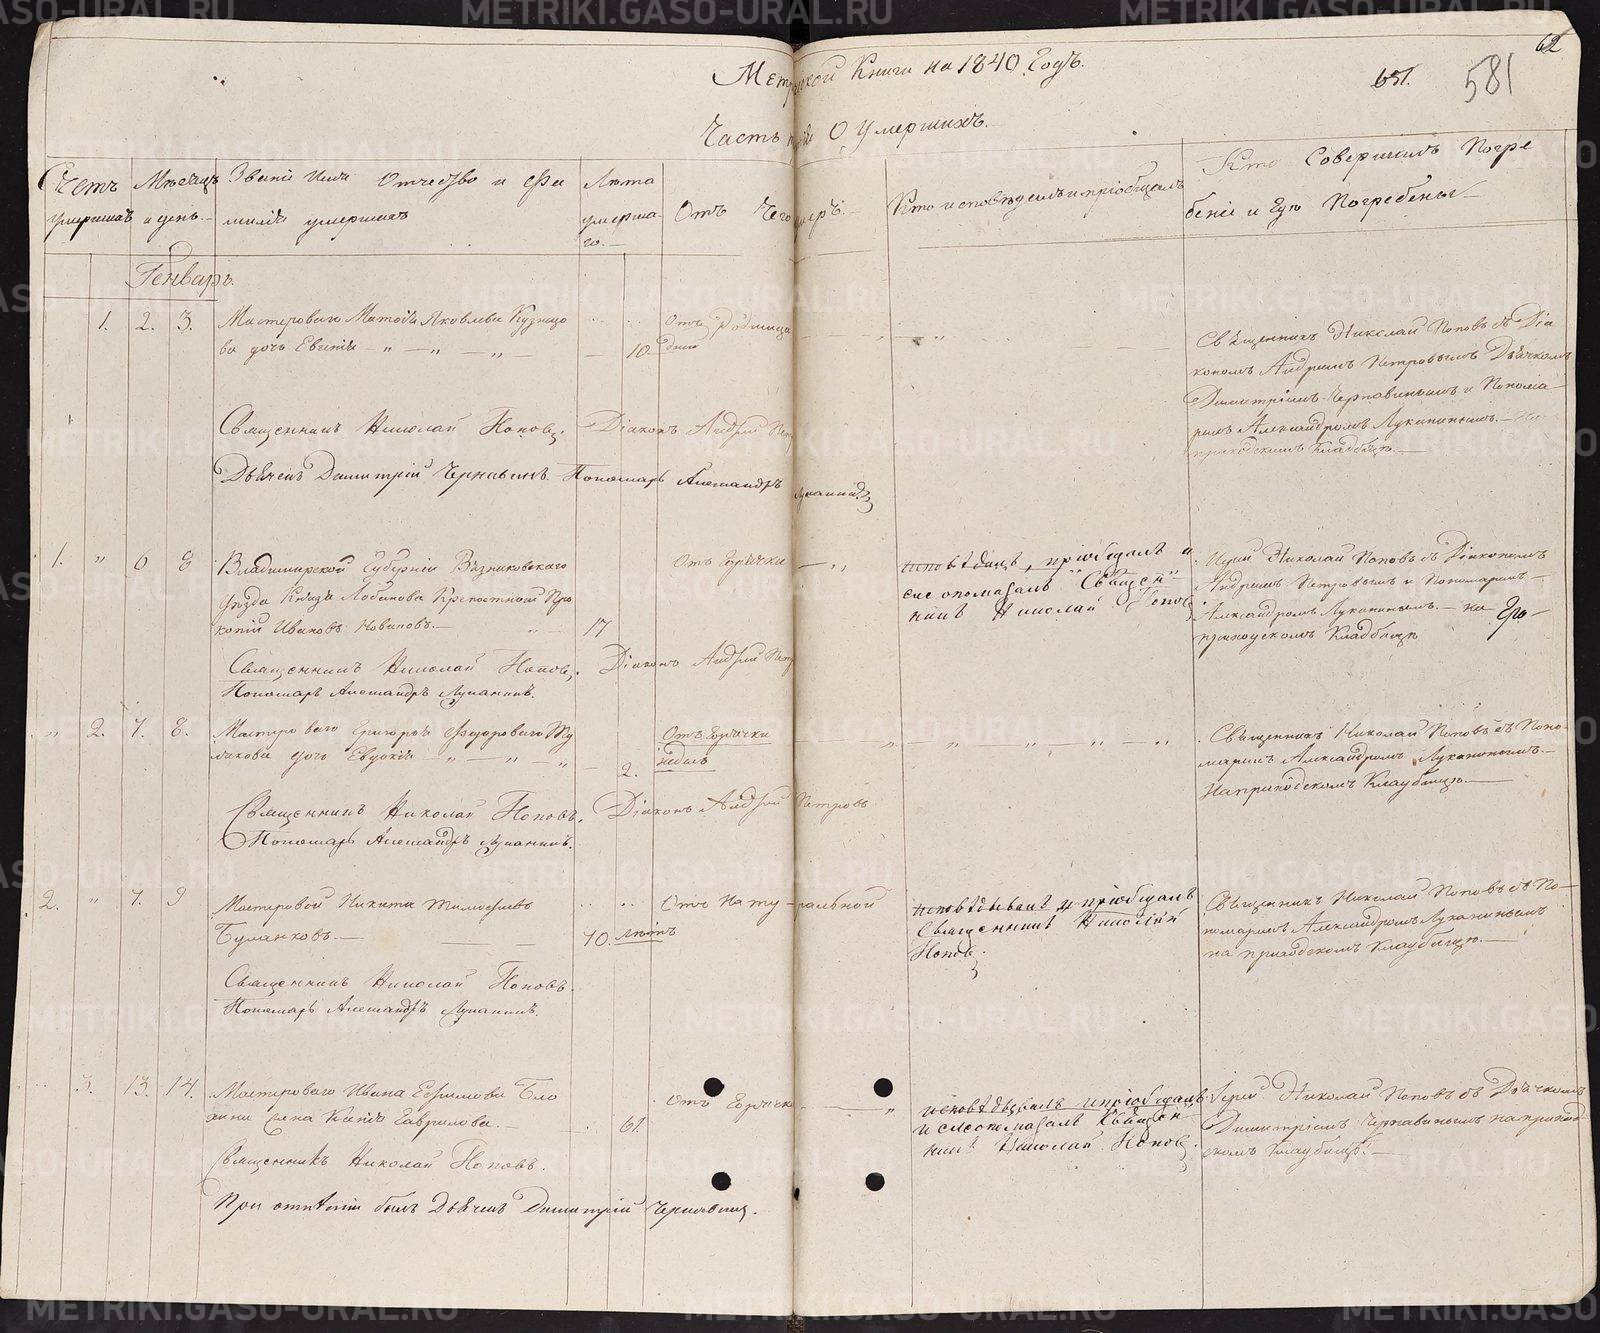 Метрической Книги на 1840 Годъ.
651.
581
62
Часть О Умершихъ.
Счетъ умершихъ
Мѣсяцъ и день
Званіе Имя Отчество и Фамилія умершихъ
Лѣта умершаго.
Отъ Чего умеръ.
Кто исповѣдовалъ и пріобщалъ
Кто Совершалъ Погребеніе и Гдѣ Погребены
Генварь.
1. 2. 3.
Мастероваго Яковлева Кузнецова дочь Евгенія
10 дней
Отъ Родимца
Священникъ Николай Поповъ съ Діакономъ Андреемъ Петровымъ Дьячкомъ
Димитріемъ Чернавинымъ и Пономаремъ Александромъ Луканинымъ.
приходскомъ Кладбищѣ
Священникъ Николай Поповъ. Діаконъ Андрей
Дьячекъ Димитрій Чернавинъ. Пономарь Александръ Луканинъ
1. " 6 8
Владимирской Губерніи Вязниковскаго
Уѣзда Князя Лобанова Крепостной Прокопій Ивановъ
17
Отъ Горячки
исповѣдалъ, пріобщалъ и
елеопомазалъ Священникъ Николай Поповъ
Іерей Николай Поповъ съ Діакономъ
Андреемъ Петровымъ и Пономаремъ
Александромъ Луканинымъ. на
приходскомъ Кладбищѣ
Священникъ Николай Поповъ. Діаконъ Андрей
Пономарь Александръ Луканинъ.
" 2. 7. 8.
Мастероваго Григорья Федорова
дочь Евдокія
2. недѣль
Отъ Горячки
Священникъ Николай Поповъ съ Пономаремъ Александромъ Луканинымъ.
На приходскомъ Кладбищѣ.
Священникъ Николай Поповъ. Діаконъ Андрей Петровъ
Пономарь Александръ Луканинъ.
2. " 7. 9
Мастеровой Никита
70 лѣтъ
Отъ Натуральной
исповѣдывалъ и пріобщалъ
Священникъ Николай
Поповъ
Священникъ Николай Поповъ съ Пономаремъ Александромъ Луканинымъ
на приходскомъ Кладбищѣ.
Священникъ Николай Поповъ.
Пономарь Александръ Луканинъ.
3. 13. 14.
Мастероваго Ивана Ефимова
жена Гаврилова.
61.
Отъ Горячки
исповѣдывалъ и пріобщалъ
и елеопомазалъ Священникъ Николай Поповъ.
Іерей Николай Поповъ съ Дьячкомъ
Димитріемъ Чернавинымъ на приходскомъ Кладбищѣ.
Священникъ Николай Поповъ.
При отпѣтіи былъ Дьячекъ Димитрій Чернавинъ.
METRIKI.GASO-URAL.RU